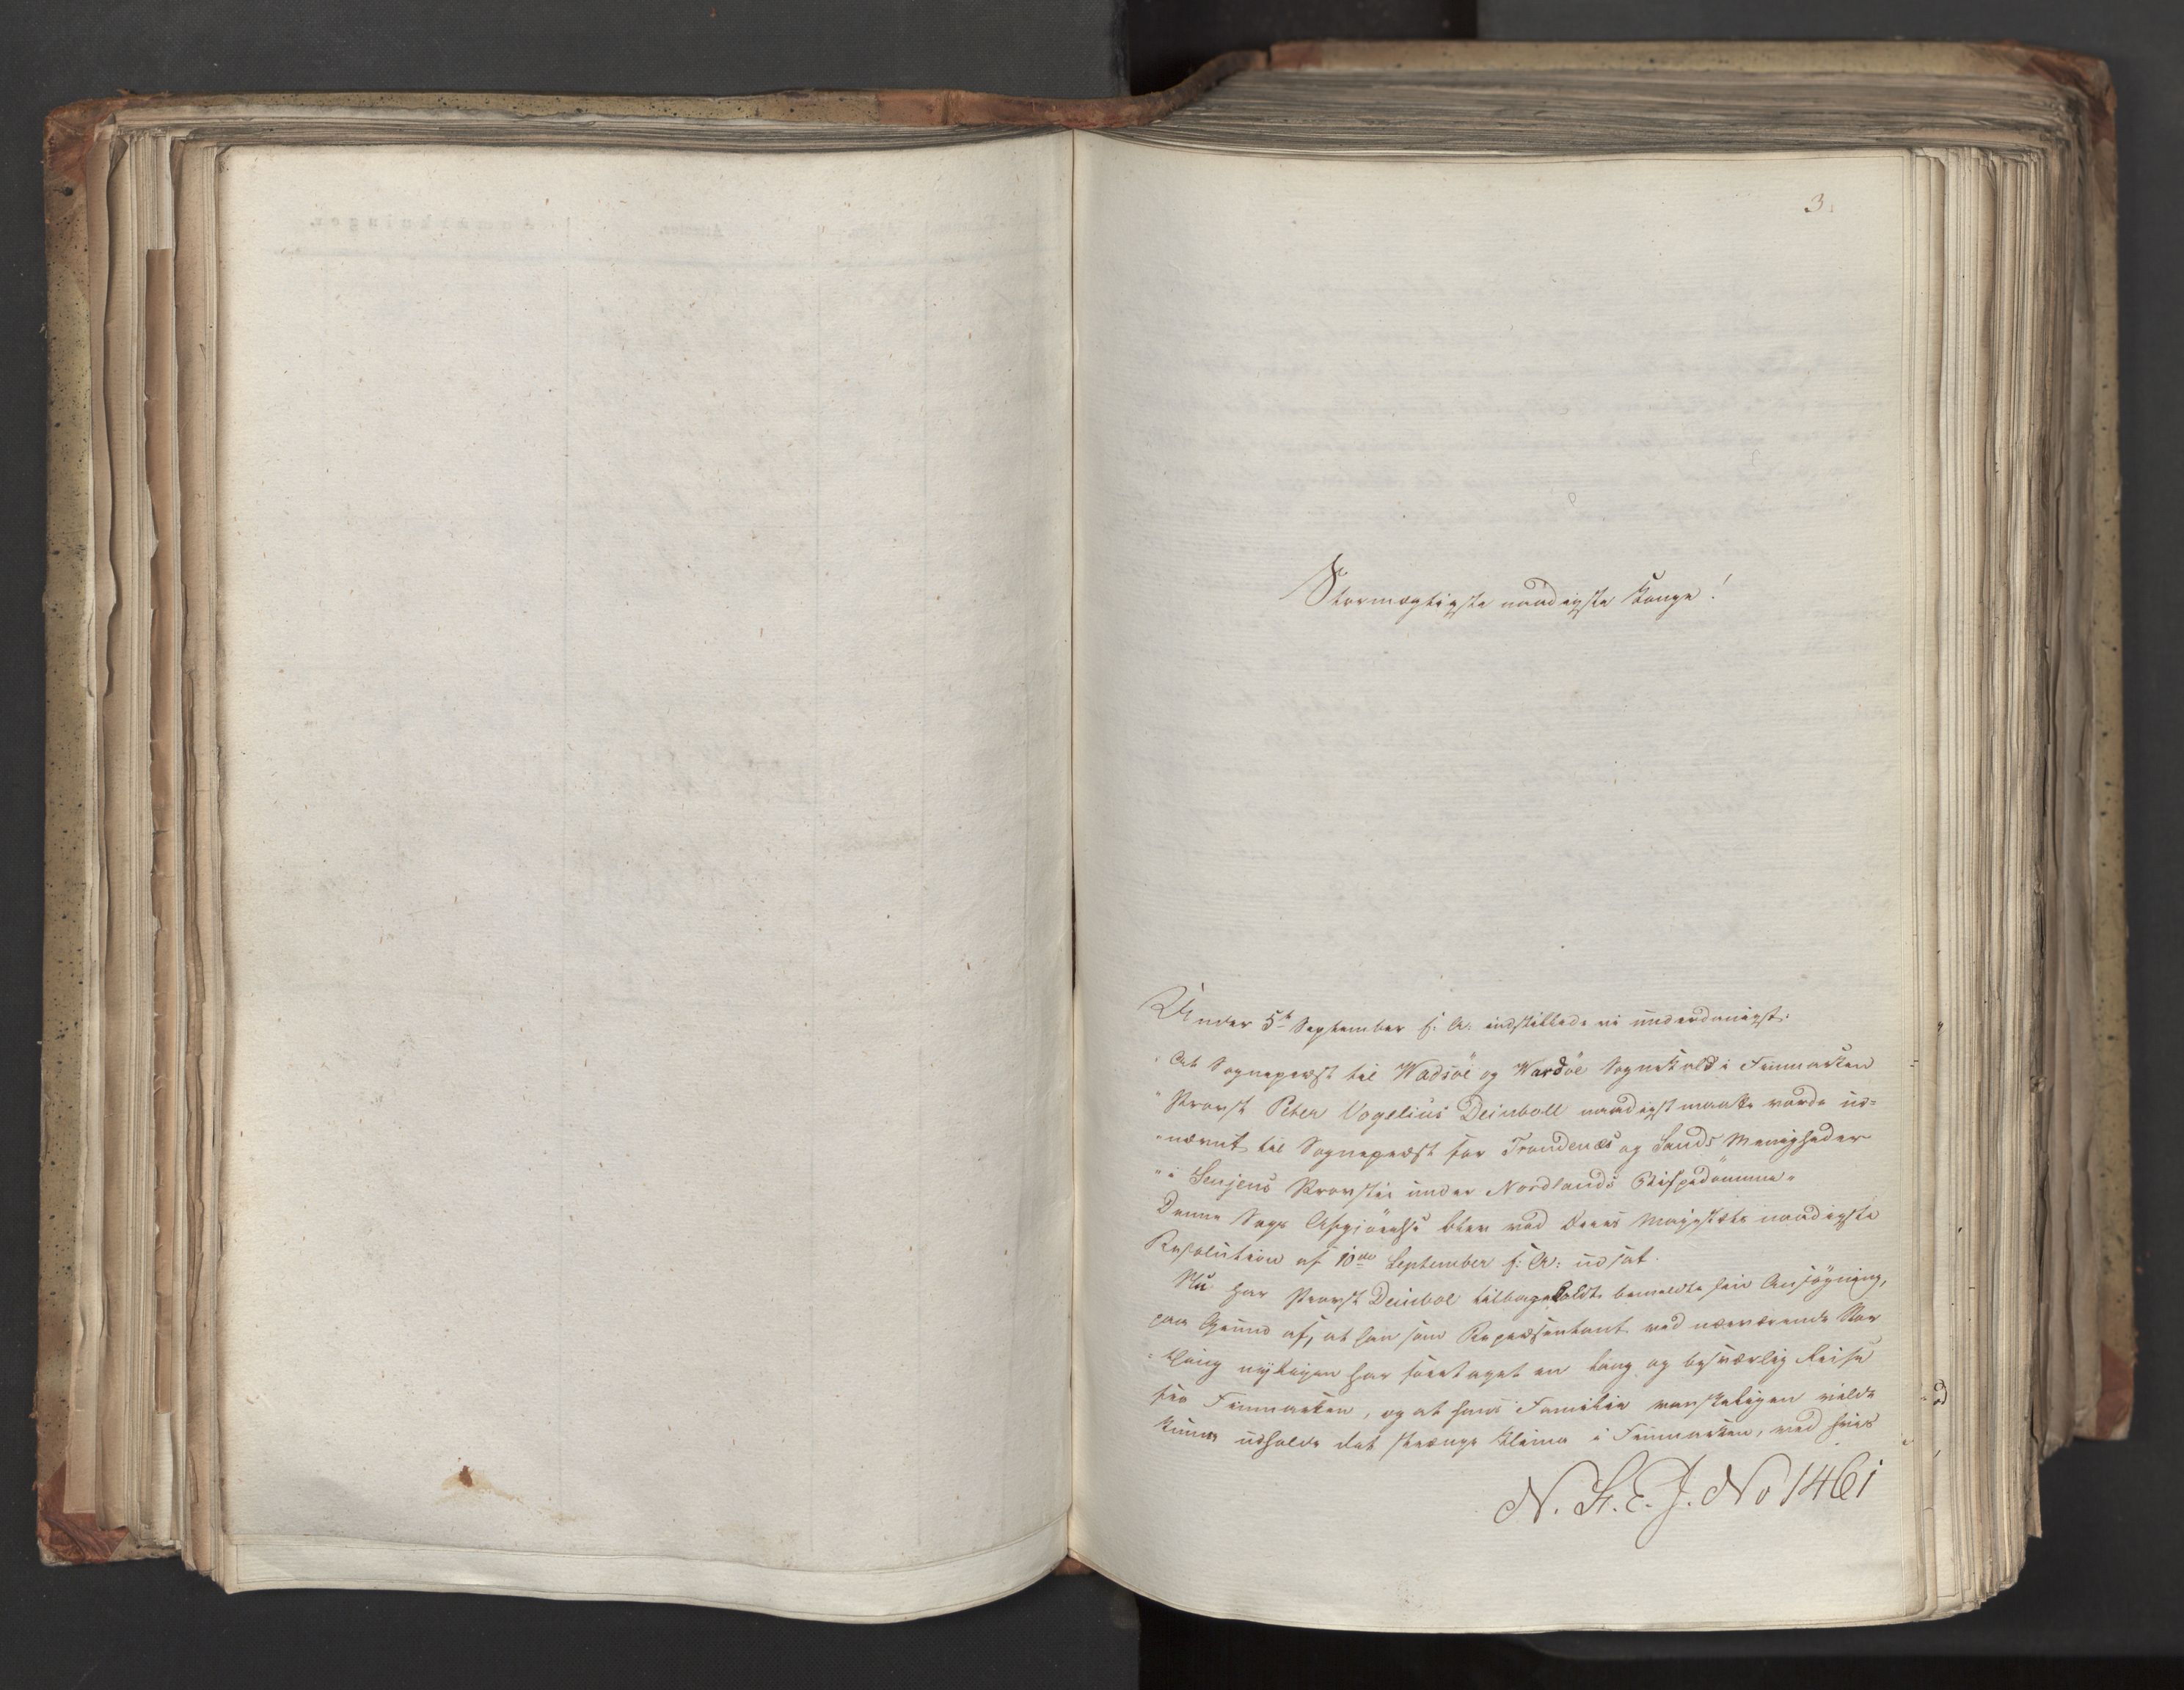 3.
Stormægtigste naadigste Konge!
Under 5te September f: A: indstillede vi underdanigst:
"At Sognepræst til Wadsöe og Wardöe Sognekald i Finmarken
"Provst Peter Vogelius Deinboll naadigst maatte vorde ud=
"nævnt til Sognepræst for Trondenæs og Sands Menigheder
"i Senjens Provstie under Nordlands Bispedömme."
Denne Sags Afgjörelse blev ved Deres Majestæts naadigste
Resolution af 10de September f: A: udsat.
Nu har Provst Deinbol tilbagekaldt bemeldte sin Ansögning,
paa Grund af, at han som Repræsentant ved nærværende Stor
=thing nyligen har foretaget en lang og besværlig Reise
fra Finmarken, og at hans Familie vanskeligen vilde
kunne udholde det strænge Klima i Finmarken, ved hvis
N. St. E. J. No 1461